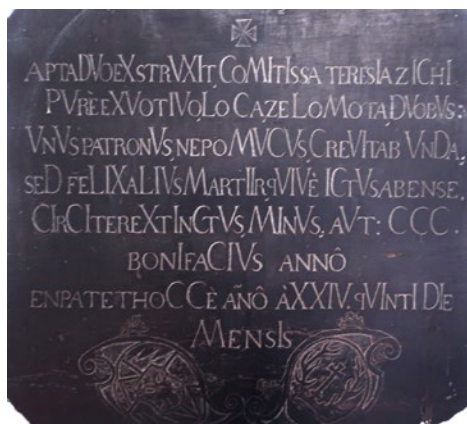 APTA DVO EXSTRVXIT, COMITISSA TERESIA ZICHI
PVRè EX VOTIVO, LOCA ZELO MOTA, DVOBVS:
VNVS PATRONVS, NEPOMVCVS, CREVIT AB VNDA,
SED FêLIX ALIVS MARTIIR qVIVè ICTVS AB ENSE,
CIRCITER EXTINCTVS, MINVS, AVT: CCC.
BONIFACIVS ANNô
EN PATET HOCCè AñÔ à XXIV. qVINTI DIE
MENSIS